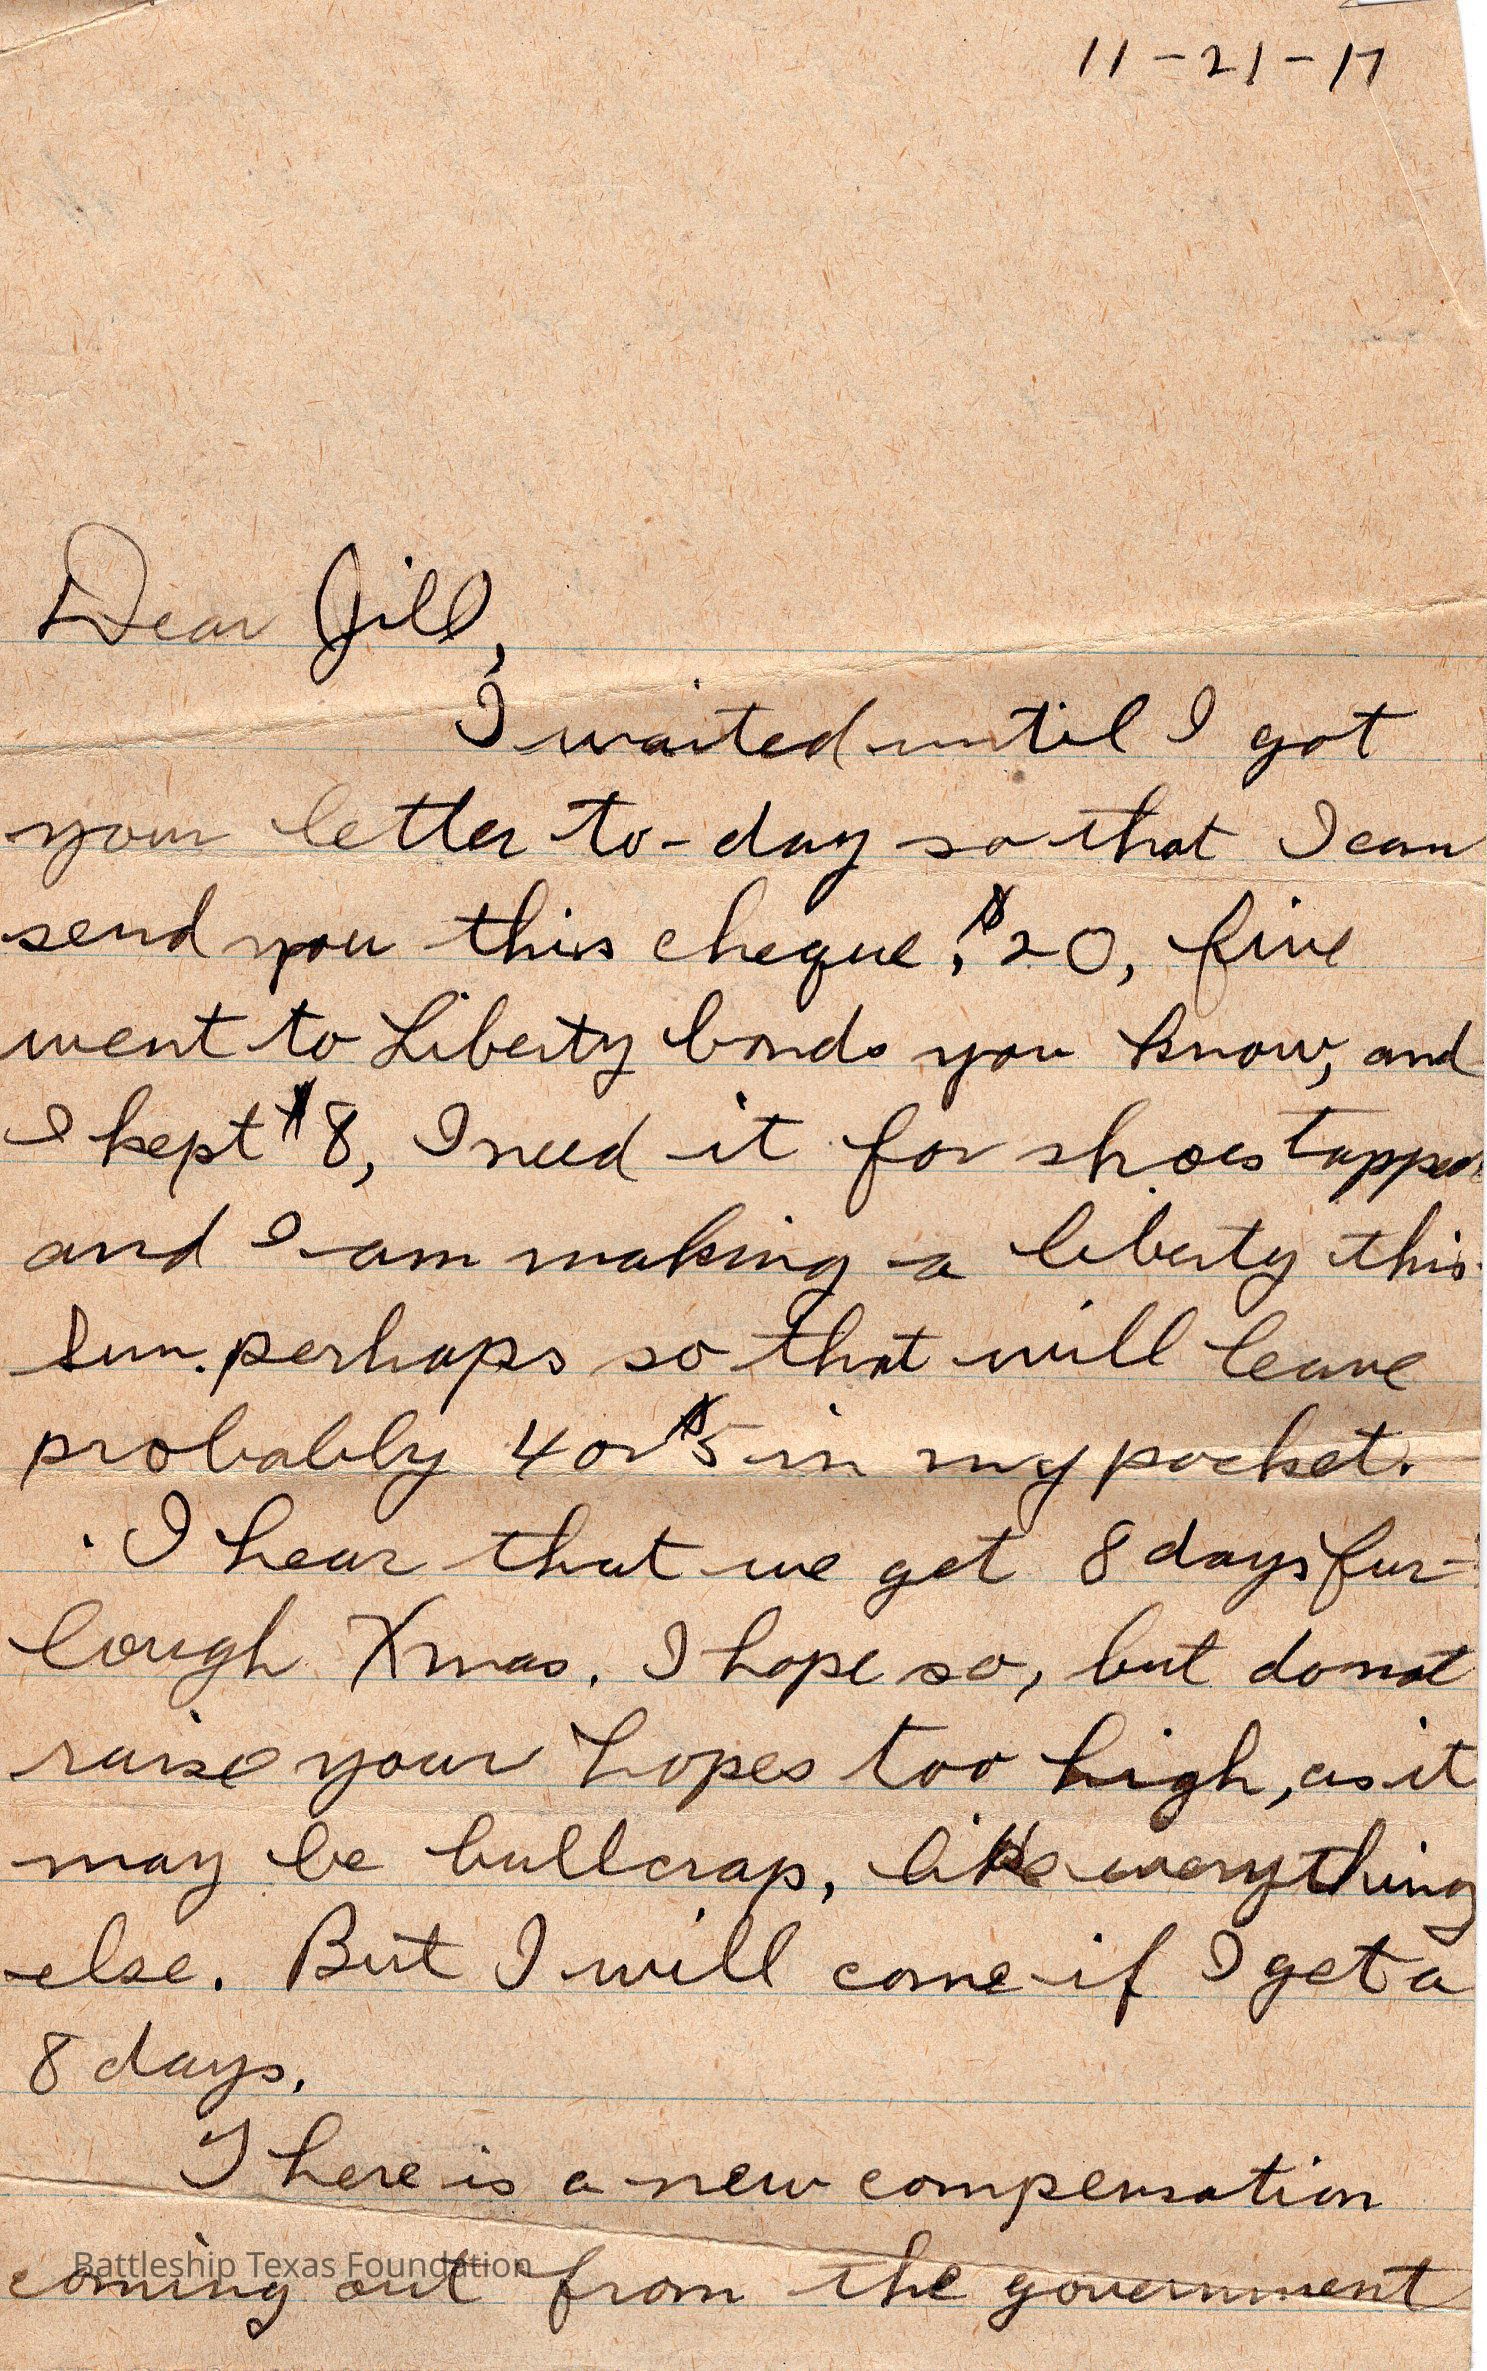 11-21-17
Dear Jill,
I waited until I got
your letter to-day so that I can
send you this cheque, $20, five
went to Liberty bonds you know, and
I kept $8, I need it for shoes tapped
and I am making a liberty this
Sun. perhaps so that will leave
probably 4 or $5 in my pocket.
I hear that we get 8 days fur-
lough Xmas. I hope so, but do not
raise your hopes too high, as it
may be bullcrap, like everything
else. But I will come if I get a
8 days.
There is a new compensation
coming out from the government
Battleship Texas Foundation